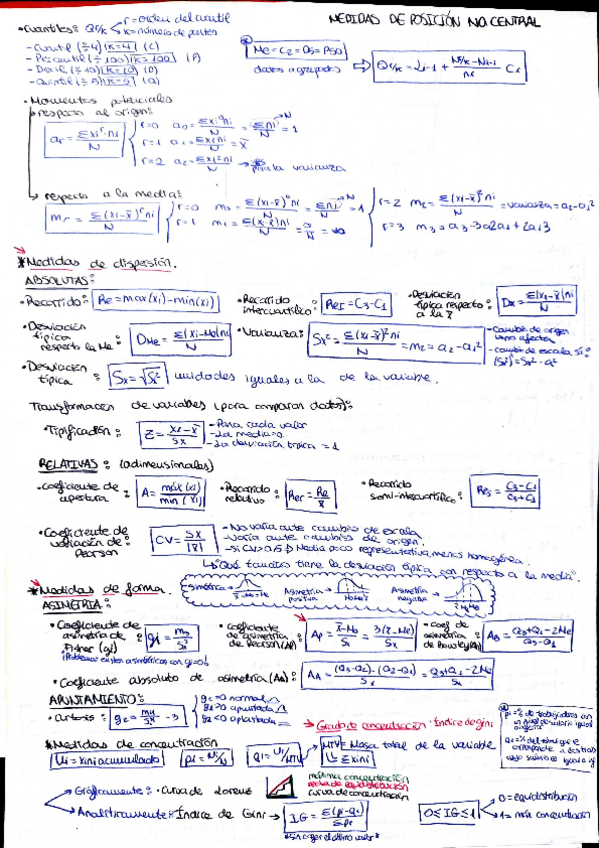 MEDIDAS DE POSICIÓN NO CENTRAL
• Cuantiles: Qr/k r = orden del cuantil
k = número de partes
- Cuartil (÷4) k=4 (C)
- Percentil (÷100) k=100 (P)
- Decil (÷10) k=10 (D)
- Quintil (÷5) k=5 (Q)
Me = C2 = D5 = P50
datos agrupados
Qr/k = Li-1 + (Nr/k - Ni-1)/ni Ci
• Momentos potenciales
respecto al origen:
ar = Σxi^r ni / N
r=0 a0 = Σxi^0 ni / N = Σni / N = 1
r=1 a1 = Σxi ni / N = x̄
r=2 a2 = Σxi² ni / N → para la varianza
respecto a la media:
mr = Σ(xi-x̄)^r ni / N
r=0 m0 = Σ(xi-x̄)^0 ni / N = Σni / N = 1
r=1 m1 = Σ(xi-x̄) ni / N = 0/N = 0
r=2 m2 = Σ(xi-x̄)² ni / N = varianza = a2-a1²
r=3 m3 = a3-3a2a1+2a1³
*Medidas de dispersión.
ABSOLUTAS:
• Recorrido: Re = max(xi)-min(xi)
• Recorrido intercuartílico: ReI = C3-C1
• Desviación típica respecto a la x̄: Dx̄ = Σ|xi-x̄|ni / N
• Desviación típica respecto la Me: DMe = Σ|xi-Me|ni / N
• Varianza: Sx² = Σ(xi-x̄)² ni / N = m2 = a2-a1²
- cambio de origen
- cambio de escala, sí:
• Desviación típica: Sx = √Sx² unidades iguales a la de la variable.
Transformación de variables (para comparar datos):
• Tipificación: Z = xi-x̄ / Sx
- Para cada valor
- La media = 0
- La desviación típica = 1
RELATIVAS: (adimensionales)
• Coeficiente de apertura: A = máx(xi) / min(xi)
• Recorrido relativo: Rer = Re / x̄
• Recorrido semi-intercuartílico: Res = C3-C1 / C3+C1
• Coeficiente de variación de Pearson: CV = Sx / |x̄|
- No varía ante cambios de escala
- Varía ante cambios de origen.
- Si CV>0,5 → Media poco representativa, menos homogénea.
"Qué tamaño tiene la desviación típica con respecto a la media".
*Medidas de forma.
Simétrica x̄=Me=Mo
Asimetría positiva
Asimetría negativa
ASIMETRÍA:
• Coeficiente de asimetría de Fisher (g1) g1 = m3 / S³
• Coeficiente de asimetría de Pearson (AP) Ap = x̄-Mo / Sx = 3(x̄-Me) / Sx
• Coef de asimetría de Bowley AB = Q3+Q1-2Me / Q3-Q1
• Coeficiente absoluto de asimetría (AA): AA = (Q3-Q2)-(Q2-Q1) / Sx = Q3+Q1-2Me / Sx
APUNTAMIENTO:
• Curtosis: g2 = m4 / S⁴ - 3
g2=0 normal
g2>0 apuntada
g2<0 aplastada
→ Grado de concentración · Índice de Gini
*Medidas de concentración
Ui = xini acumulado
pi = Ni/N
qi = Ui/MTV
MTV = Masa total de la variable
Σxini
Gráficamente: • Curva de Lorenz
máxima concentración
recta de equidistribución
curva de concentración
Analíticamente: • Índice de Gini → IG = Σ(pi-qi) / Σpi
*Sin coger el último valor*
0≤IG≤1
0 = equidistribución
1 = máx concentración